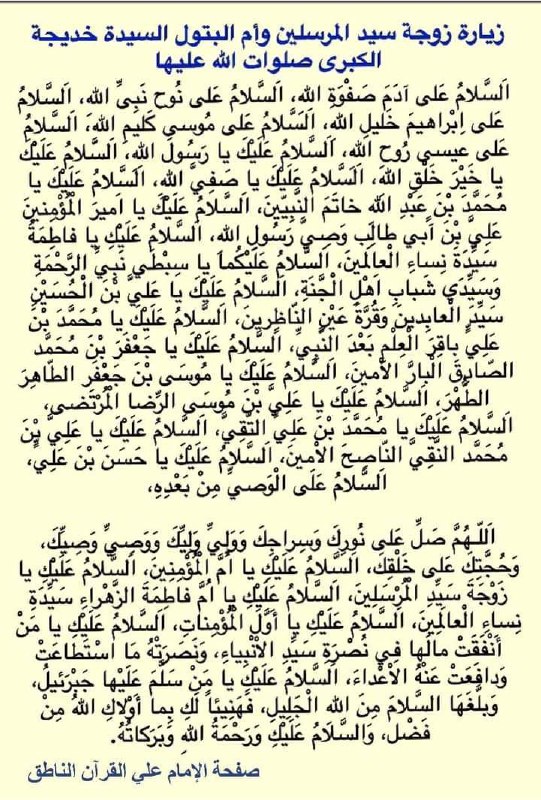 زيارة زوجة سيد المرسلين وأم البتول السيدة خديجة
الكبرى صلوات الله عليها
اَلسَّلامُ عَلى آدَمَ صَفْوَةِ الله، اَلسَّلامُ عَلى نُوح نَبِيِّ الله، اَلسَّلامُ
عَلى اِبْراهيمَ خَليلِ الله، اَلسَّلامُ عَلى مُوسى كَليمِ اللهِ، اَلسَّلامُ
عَلى عيسى رُوحِ اللهِ، اَلسَّلامُ عَلَيْكَ يا رَسُولَ اللهِ، اَلسَّلامُ عَلَيْكَ
يا خَيْرَ خَلْقِ الله، اَلسَّلامُ عَلَيْكَ يا صَفيَّ اللهِ، اَلسَّلامُ عَلَيْكَ يا
مُحَمَّدَ بْنَ عَبْدِ اللهِ خاتَمَ النَّبِيّينَ، اَلسَّلامُ عَلَيْكَ يا اَميرَ الْمُؤْمِنينَ
عَلىَّ بْنَ اَبي طالِب وَصِىَّ رَسُولِ اللهِ، اَلسَّلامُ عَلَيْكِ يا فاطِمَةُ
سَيِّدَةَ نِساءِ الْعالَمينَ، اَلسَّلامُ عَلَيْكُما يا سِبْطَي نَبِيِّ الرَّحْمَةِ
وَسَيِّدَي شَبابِ اَهْلِ الْجَنَّةِ، اَلسَّلامُ عَلَيْكَ يا عَلِيَّ بْنَ الْحُسَيْنِ
سَيِّدَ الْعابِدينَ وَقُرَّةَ عَيْنِ النّاظِرينَ، اَلسَّلامُ عَلَيْكَ يا مُحَمَّدَ بْنَ
عَلِي باقِرَ الْعِلْمِ بَعْدَ النَّبِيِّ، اَلسَّلامُ عَلَيْكَ يا جَعْفَرَ بْنَ مُحَمَّد
الصّادِقَ الْبارَّ الْاَمينَ، اَلسَّلامُ عَلَيْكَ يا مُوسَى بْنَ جَعْفَر الطّاهِرَ
الطُّهْرَ، اَلسَّلامُ عَلَيْكَ يا عَلِيَّ بْنَ مُوسَى الرِّضا الْمُرْتَضى،
اَلسَّلامُ عَلَيْكَ يا مُحَمَّدَ بْنَ عَلي التَّقِيَّ، اَلسَّلامُ عَلَيْكَ يا عَلِيَّ بْنَ
مُحَمَّد النَّقِيَّ النّاصِحَ الْاَمينَ، اَلسَّلامُ عَلَيْكَ يا حَسَنَ بْنَ عَلِي،
اَلسَّلامُ عَلَى الْوَصيِّ مِنْ بَعْدِهِ،
اَللّهُمَّ صَلِّ عَلى نُورِكَ وَسِراجِكَ وَوَلِيِّ وَلِيِّكَ وَوَصِيِّ وَصِيِّكَ،
وَحُجَّتِكَ عَلى خَلْقِكَ، اَلسَّلامُ عَلَيْكِ يا اُمَّ الْمُؤْمِنِينَ، اَلسَّلامُ عَلَيْكِ يا
زَوْجَةَ سَيِّدِ الْمُرْسَلِينَ، اَلسَّلامُ عَلَيْكِ يا اُمَّ فاطِمَةَ الزَّهْراءِ سَيِّدَةِ
نِساءِ الْعالَمِينَ، اَلسَّلامُ عَلَيْكِ يا أَوَّلَ الْمُؤْمِناتِ، اَلسَّلامُ عَلَيْكِ يا مَنْ
أَنْفَقَتْ مالَها في نُصْرَةِ سَيِّدِ الاَْنْبِياءِ، وَنَصَرَتْهُ مَا اسْتَطاعَتْ
وَدافَعَتْ عَنْهُ الاَْعْداءَ، اَلسَّلامُ عَلَيْكِ يا مَنْ سَلَّمَ عَلَيْها جَبْرَئيلُ،
وَبَلَّغَهَا السَّلامَ مِنَ اللهِ الْجَلِيلِ، فَهَنِيئاً لَكِ بِما أَوْلاكِ اللهُ مِنْ
فَضْل، وَالسَّلامُ عَلَيْكِ وَرَحْمَةُ اللهِ وَبَرَكاتُهُ.
صفحة الإمام علي القرآن الناطق